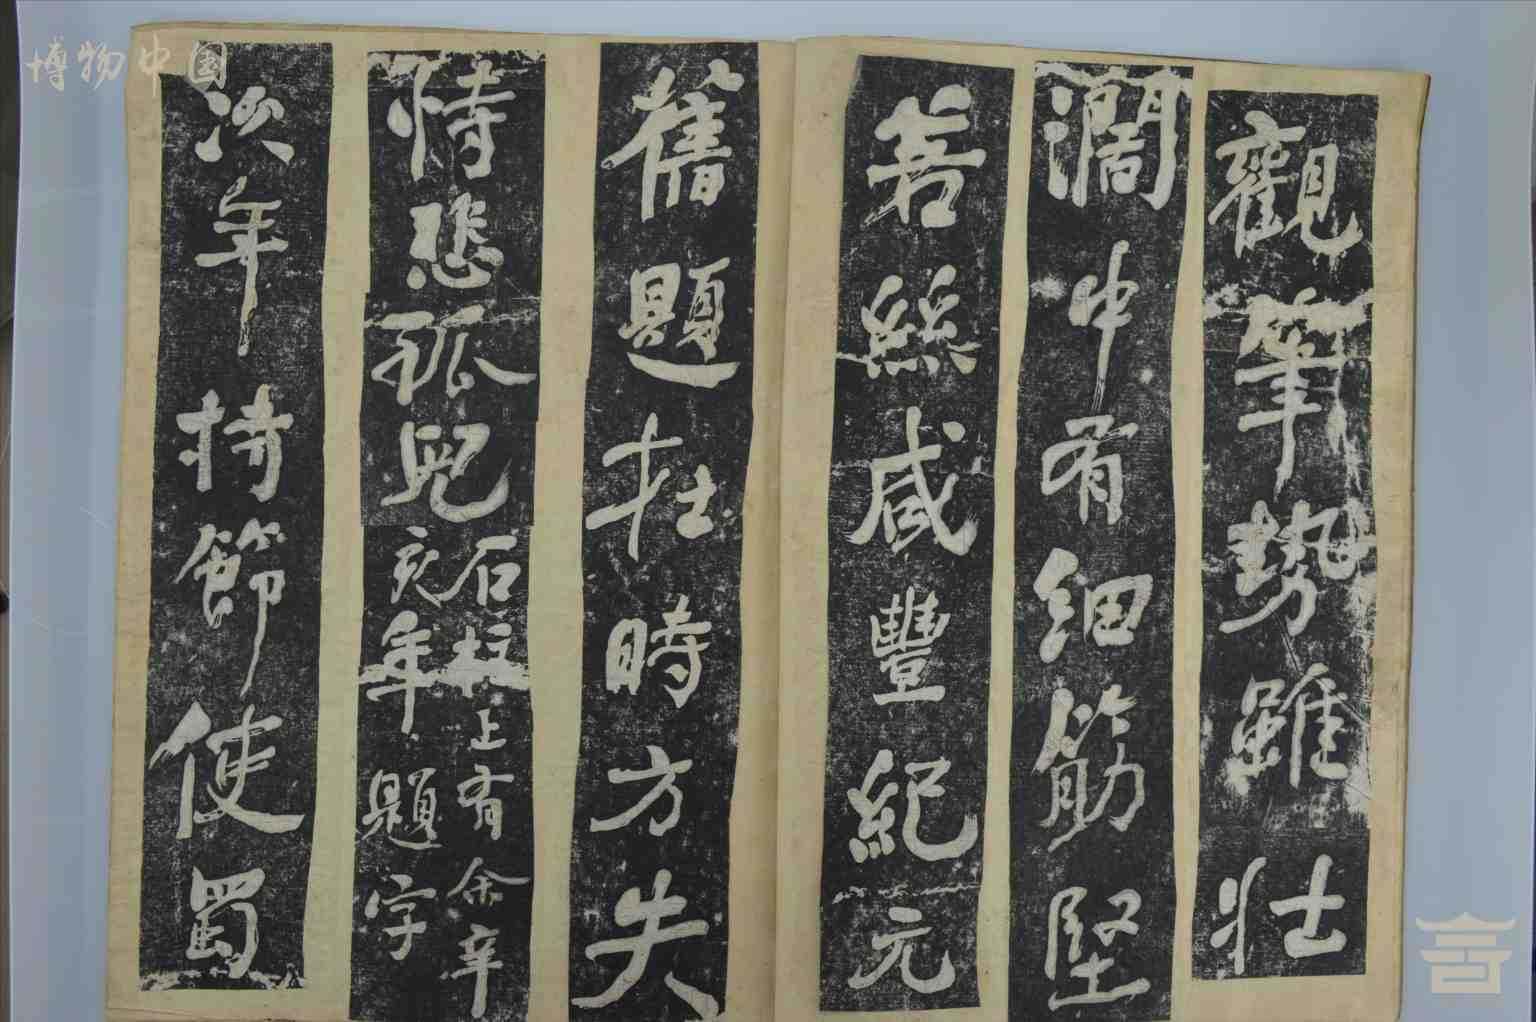 博物中国
觀筆勢雖壯
濶中有細筋堅
若絲咸豐紀元
舊題在時方失
恃悲孤兒
石柱上有余辛
亥年題字
次年持節使蜀